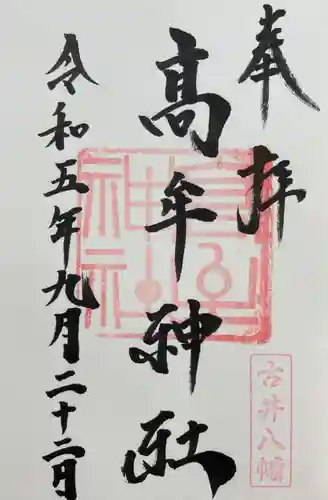 奉拝
高牟神社
令和五年九月二十二日
古井八幡